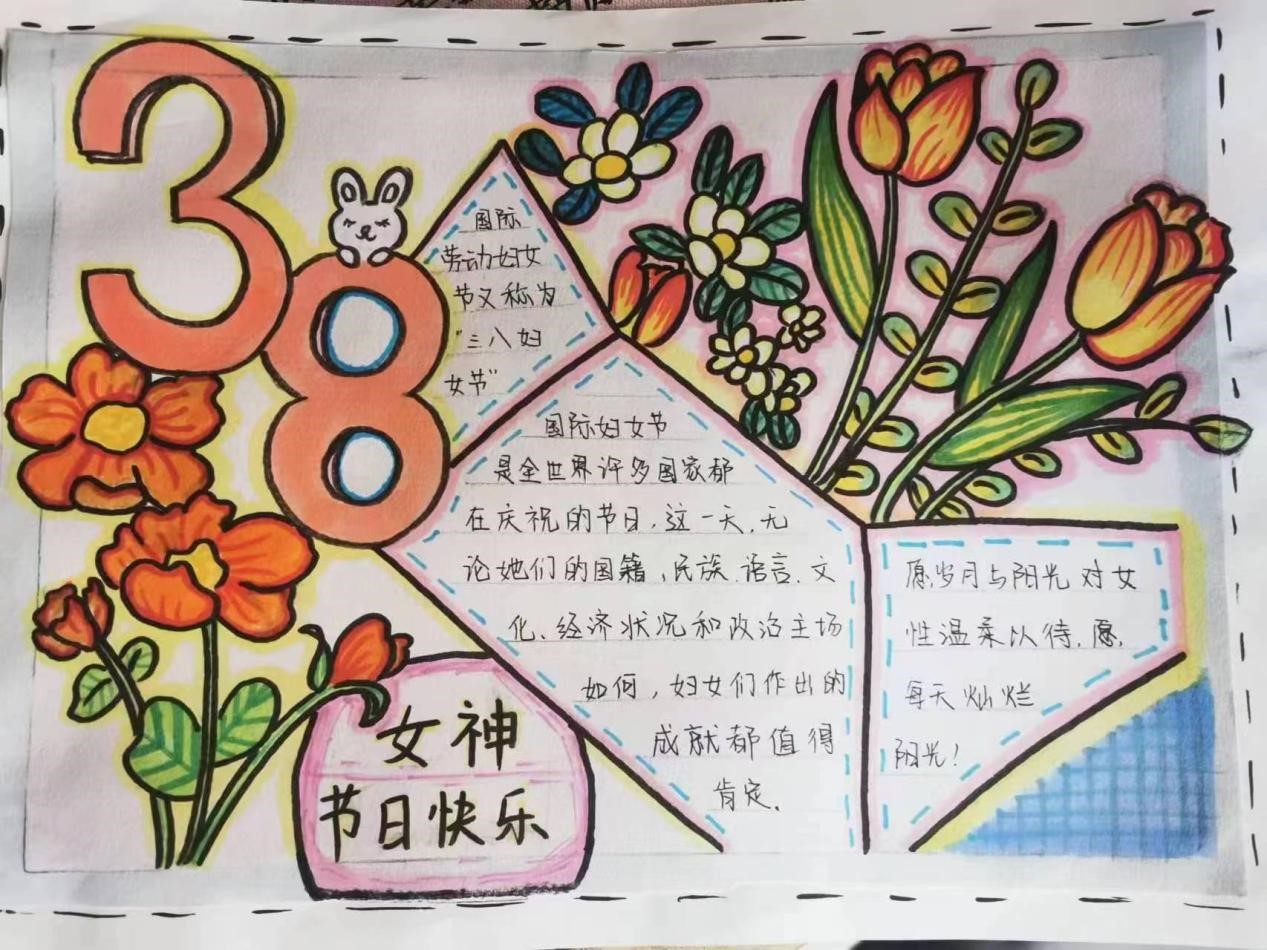 38
国际
劳动妇女
节又称为
"三八妇
女节"
国际妇女节
是全世界许多国家都
在庆祝的节日,这一天,无
论她们的国籍、民族、语言、文
化、经济状况和政治主场
如何,妇女们作出的
成就都值得
肯定.
愿岁月与阳光对女
性温柔以待.愿,
每天灿烂
阳光!
女神
节日快乐